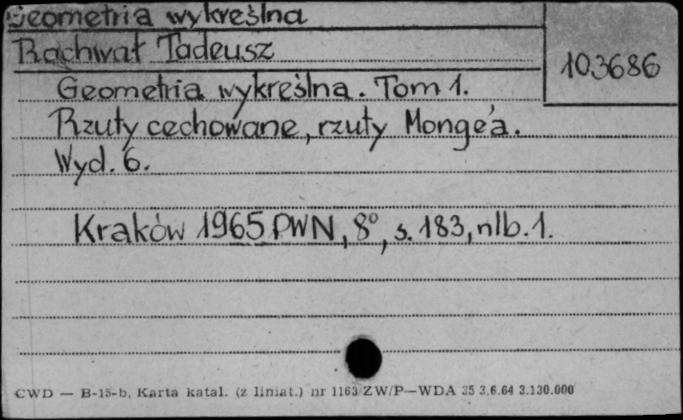 Geometria wykreślna
Rachwał Tadeusz
103686
Geometria wykreślna. Tom 1.
Rzuty cechowane, rzuty Monge'a.
Wyd. 6.
Kraków 1965 PWN, 8°, s. 183, nlb. 1.
CWD — B-15-b, Karta katal. (z liniat.) nr 1163 ZW/P—WDA 35 3.6.64 3.130.000